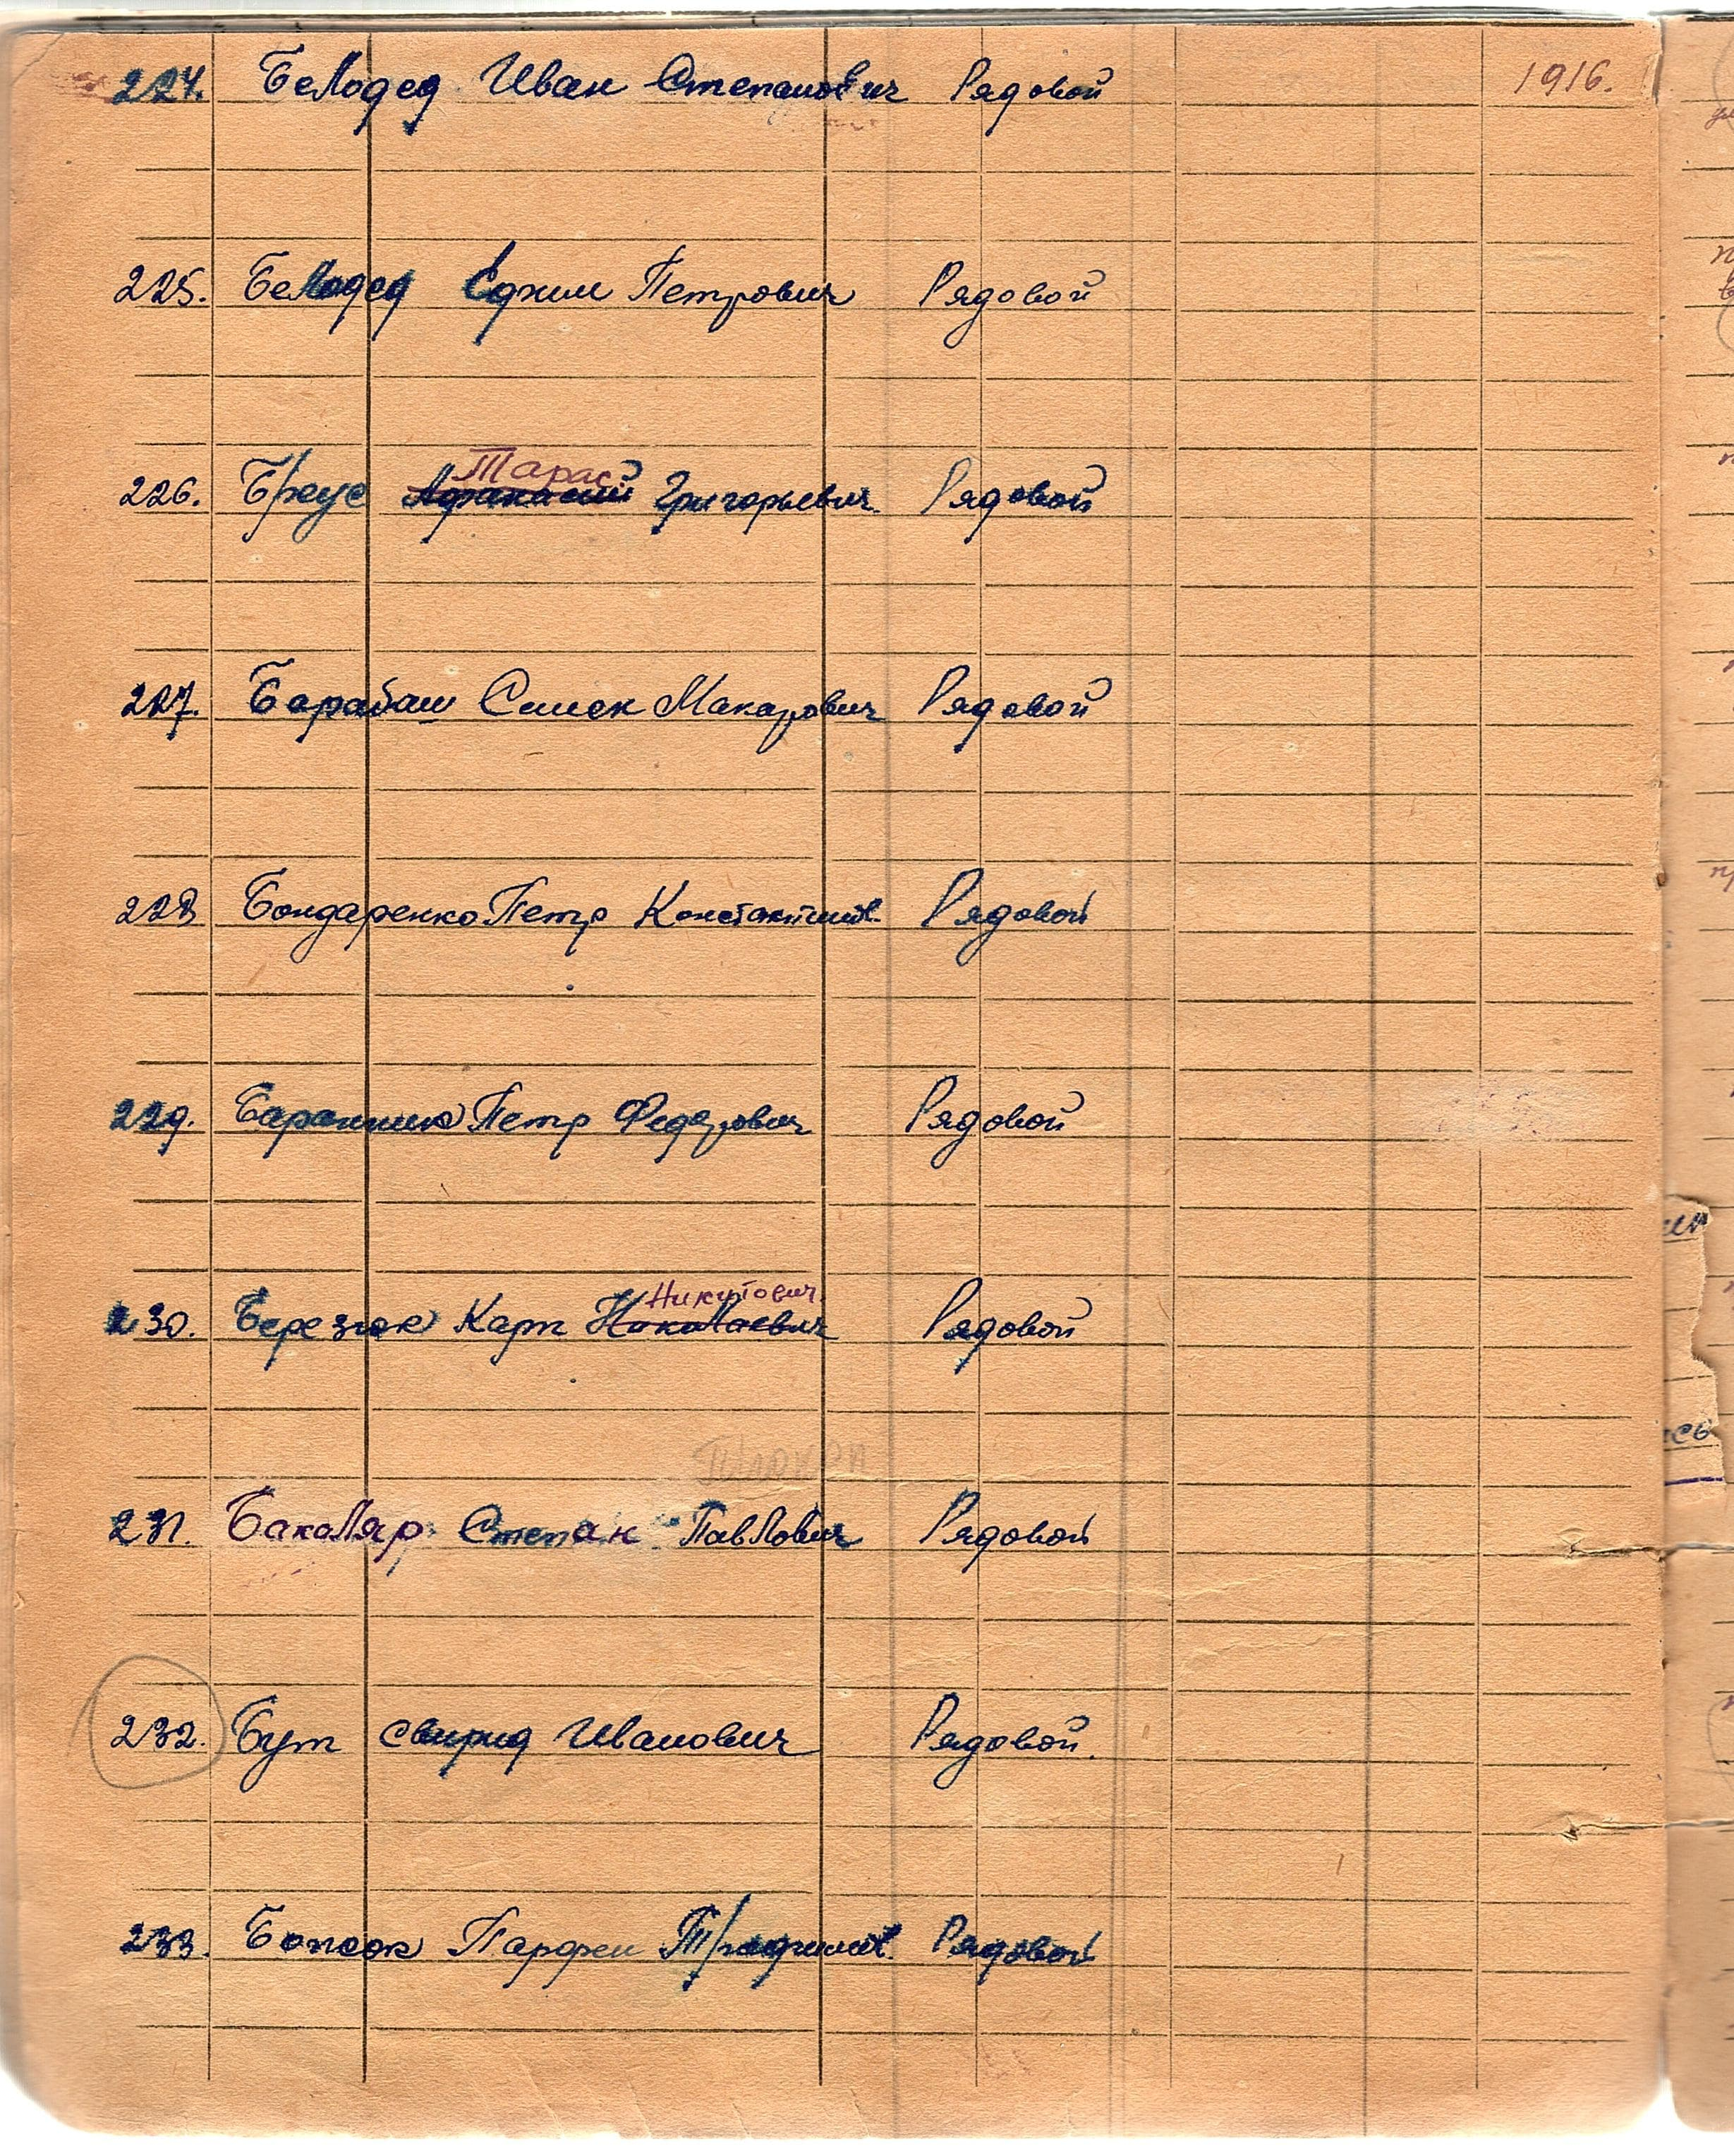 224. Белодед Иван Степанович Рядовой 1916.
225. Белодед Ефим Петрович Рядовой
Тарас
226. Бреус Афанасий Григорьевич Рядовой
227. Барабаш Семен Макарович Рядовой
228 Бондаренко Петр Константинов. Рядовой
229. Баранник Петр Федорович Рядовой
Никитович
230. Березюк Карп Николаевич Рядовой
231. Бакаляр Степан Павлович Рядовой
232. Бут Свирид Иванович Рядовой.
233. Парфен Рядовой